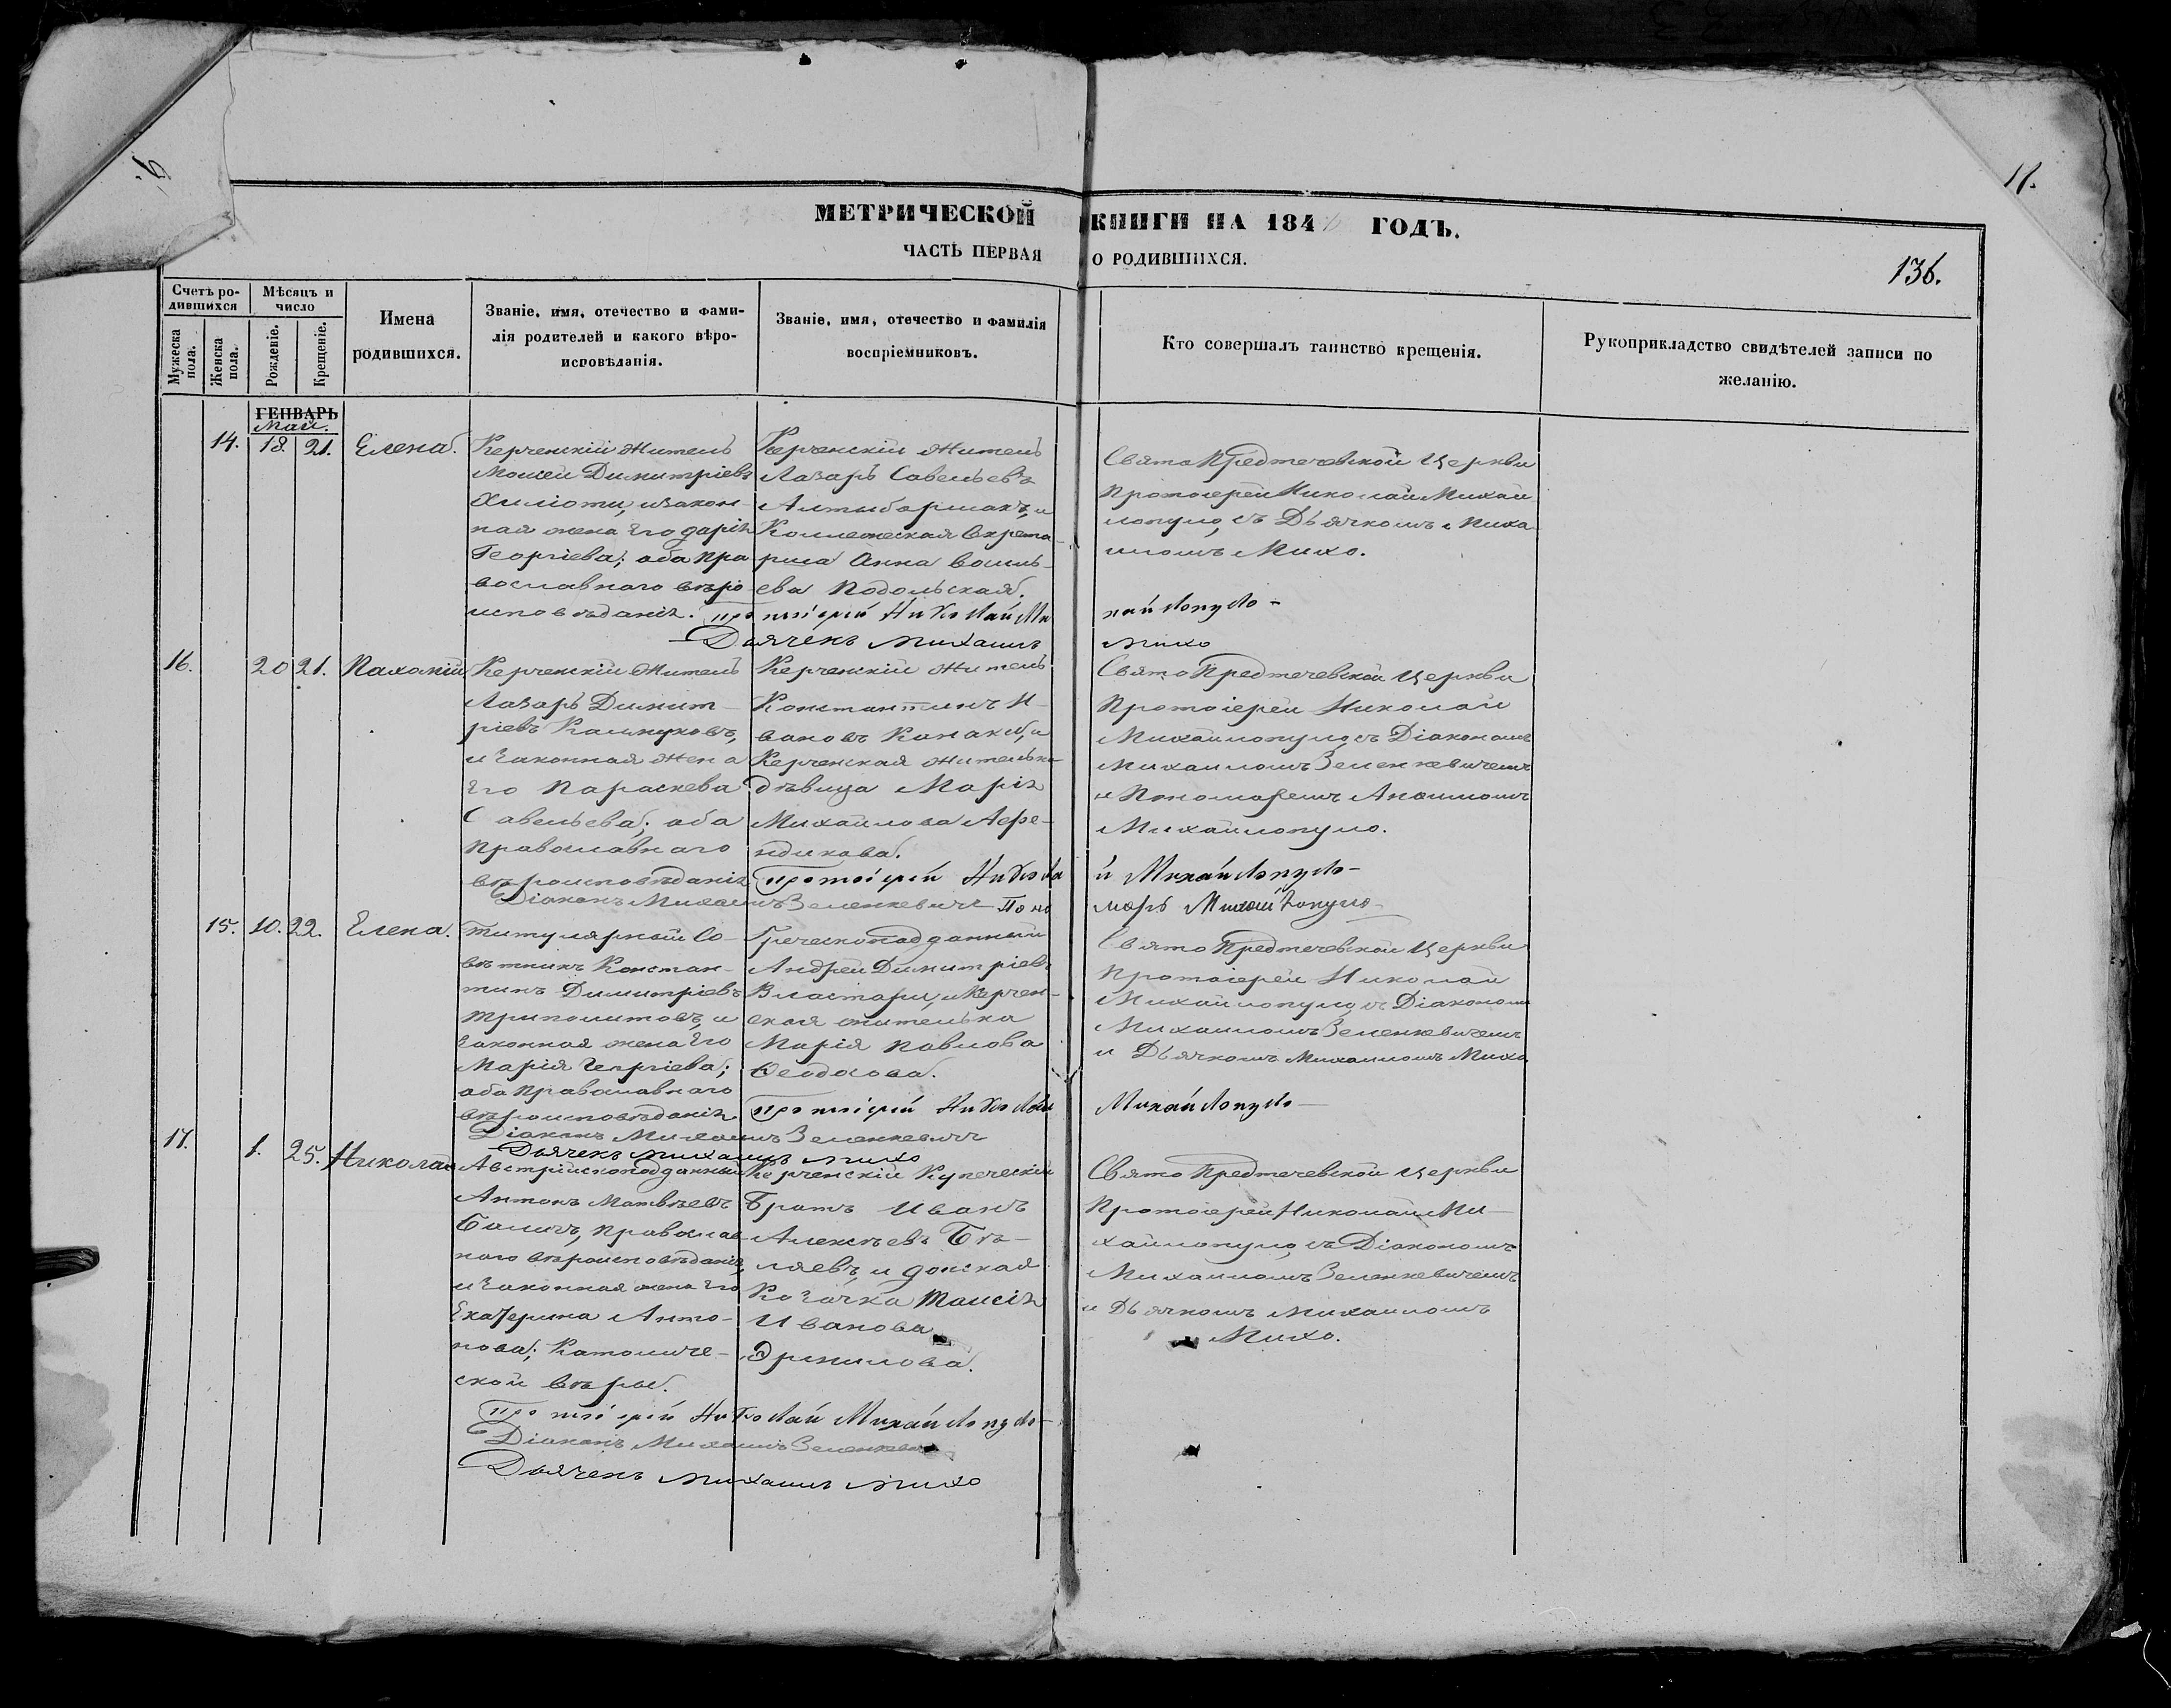 17.
МЕТРИЧЕСКОЙ КНИГИ НА 184 ГОДЪ.
ЧАСТЬ ПЕРВАЯ О РОДИВШИХСЯ.
136.
Счетъ ро-
дившихся
Мужеска пола.
Женска пола.
Мѣсяцъ и
число
Рожденіе.
Крещеніе.
Имена
родившихся.
Званіе, имя, отечество и фами-
лія родителей и какого вѣро-
исповѣданія.
Званіе, имя, отечество и фамилія
воспріемниковъ.
Кто совершалъ таинство крещенія.
Рукоприкладство свидѣтелей записи по
желанію.
ГЕНВАРЬ
Май.
14. 18. 21. Елена.
Керченскій Житель
Моисей Димитріевъ
Хиліоти, и закон-
ная жена Его Дарія
Георгіева; оба Пра
вославнаго вѣро
исповѣданія.
Керченскій Житель
Лазарь Савельевъ
Алтыбармакъ, и
Коллежская Секрета-
рша Анна Василь-
ева Подольская.
Свято Предтечевской Церкви
Протоіерей Николай Михай
лопуло, съ Дьячкомъ Миха
иломъ Михо.
Протоіерей Николай Ми хайлопуло-
Дьячекъ Михаилъ Михо
16. 20 21. Пахомій
Керченскій Житель
Лазарь Димит-
ріевъ Калмуковъ,
и Законная Жена
Его Параскева
Савельева; оба
Православнаго
вѣроисповѣданія
Керченскій Житель
Константинъ И-
вановъ Канаки, и
Керченская Жителька
дѣвица Марія
Михайлова Афе-
ндикова.
Свято Предтечевской Церкви
Протоіерей Николай
Михайлопуло, съ Діакономъ
Михаиломъ Зеленкевичемъ
и Пономаремъ
Михайлопуло.
Протоіерей Никола й Михайлопуло-
Діаконъ Михаилъ Зеленкевичъ Поно марь Михайлопуло
15. 10. 22. Елена.
Титулярный Со-
вѣтникъ Констан-
тинъ Димитріевъ
Триполитовъ, и
Законная жена Его
Марія Георгіева;
оба Православнаго
вѣроисповѣданія
Греческоподданный
Андрей Димитріевъ
Властари, и Керчен-
ская жителька
Марія Павлова
Феодосова.
Свято Предтечевской Церкви
Протоіерей Николай
Михайлопуло, съ Діакономъ
Михаиломъ Зеленкевичемъ
и Дьячкомъ Михаиломъ Михо
Протоіерей Николай Михайлопуло-
Діаконъ Михаилъ Зеленкевичъ
Дьячекъ Михаилъ Михо
17. 1. 25. Николай
Австрійскоподданный
Антонъ Матвѣевъ
Баличъ, Православ-
наго вѣроисповѣданія,
и Законная жена Его
Екатерина Анто-
нова; Католиче-
ской вѣры.
Керченскій Купеческій
Братъ Иванъ
Алексѣевъ Бѣ-
ляевъ, и Донская
Козачка Таисія
Иванова
Эрмилова.
Свято Предтечевской Церкви
Протоіерей Николай Ми-
хайлопуло, съ Діакономъ
Михаиломъ Зеленкевичемъ
и Дьячкомъ Михаиломъ
Михо.
Протоіерей Николай Михайлопуло-
Діаконъ Михаилъ Зеленкевичъ
Дьячекъ Михаилъ Михо